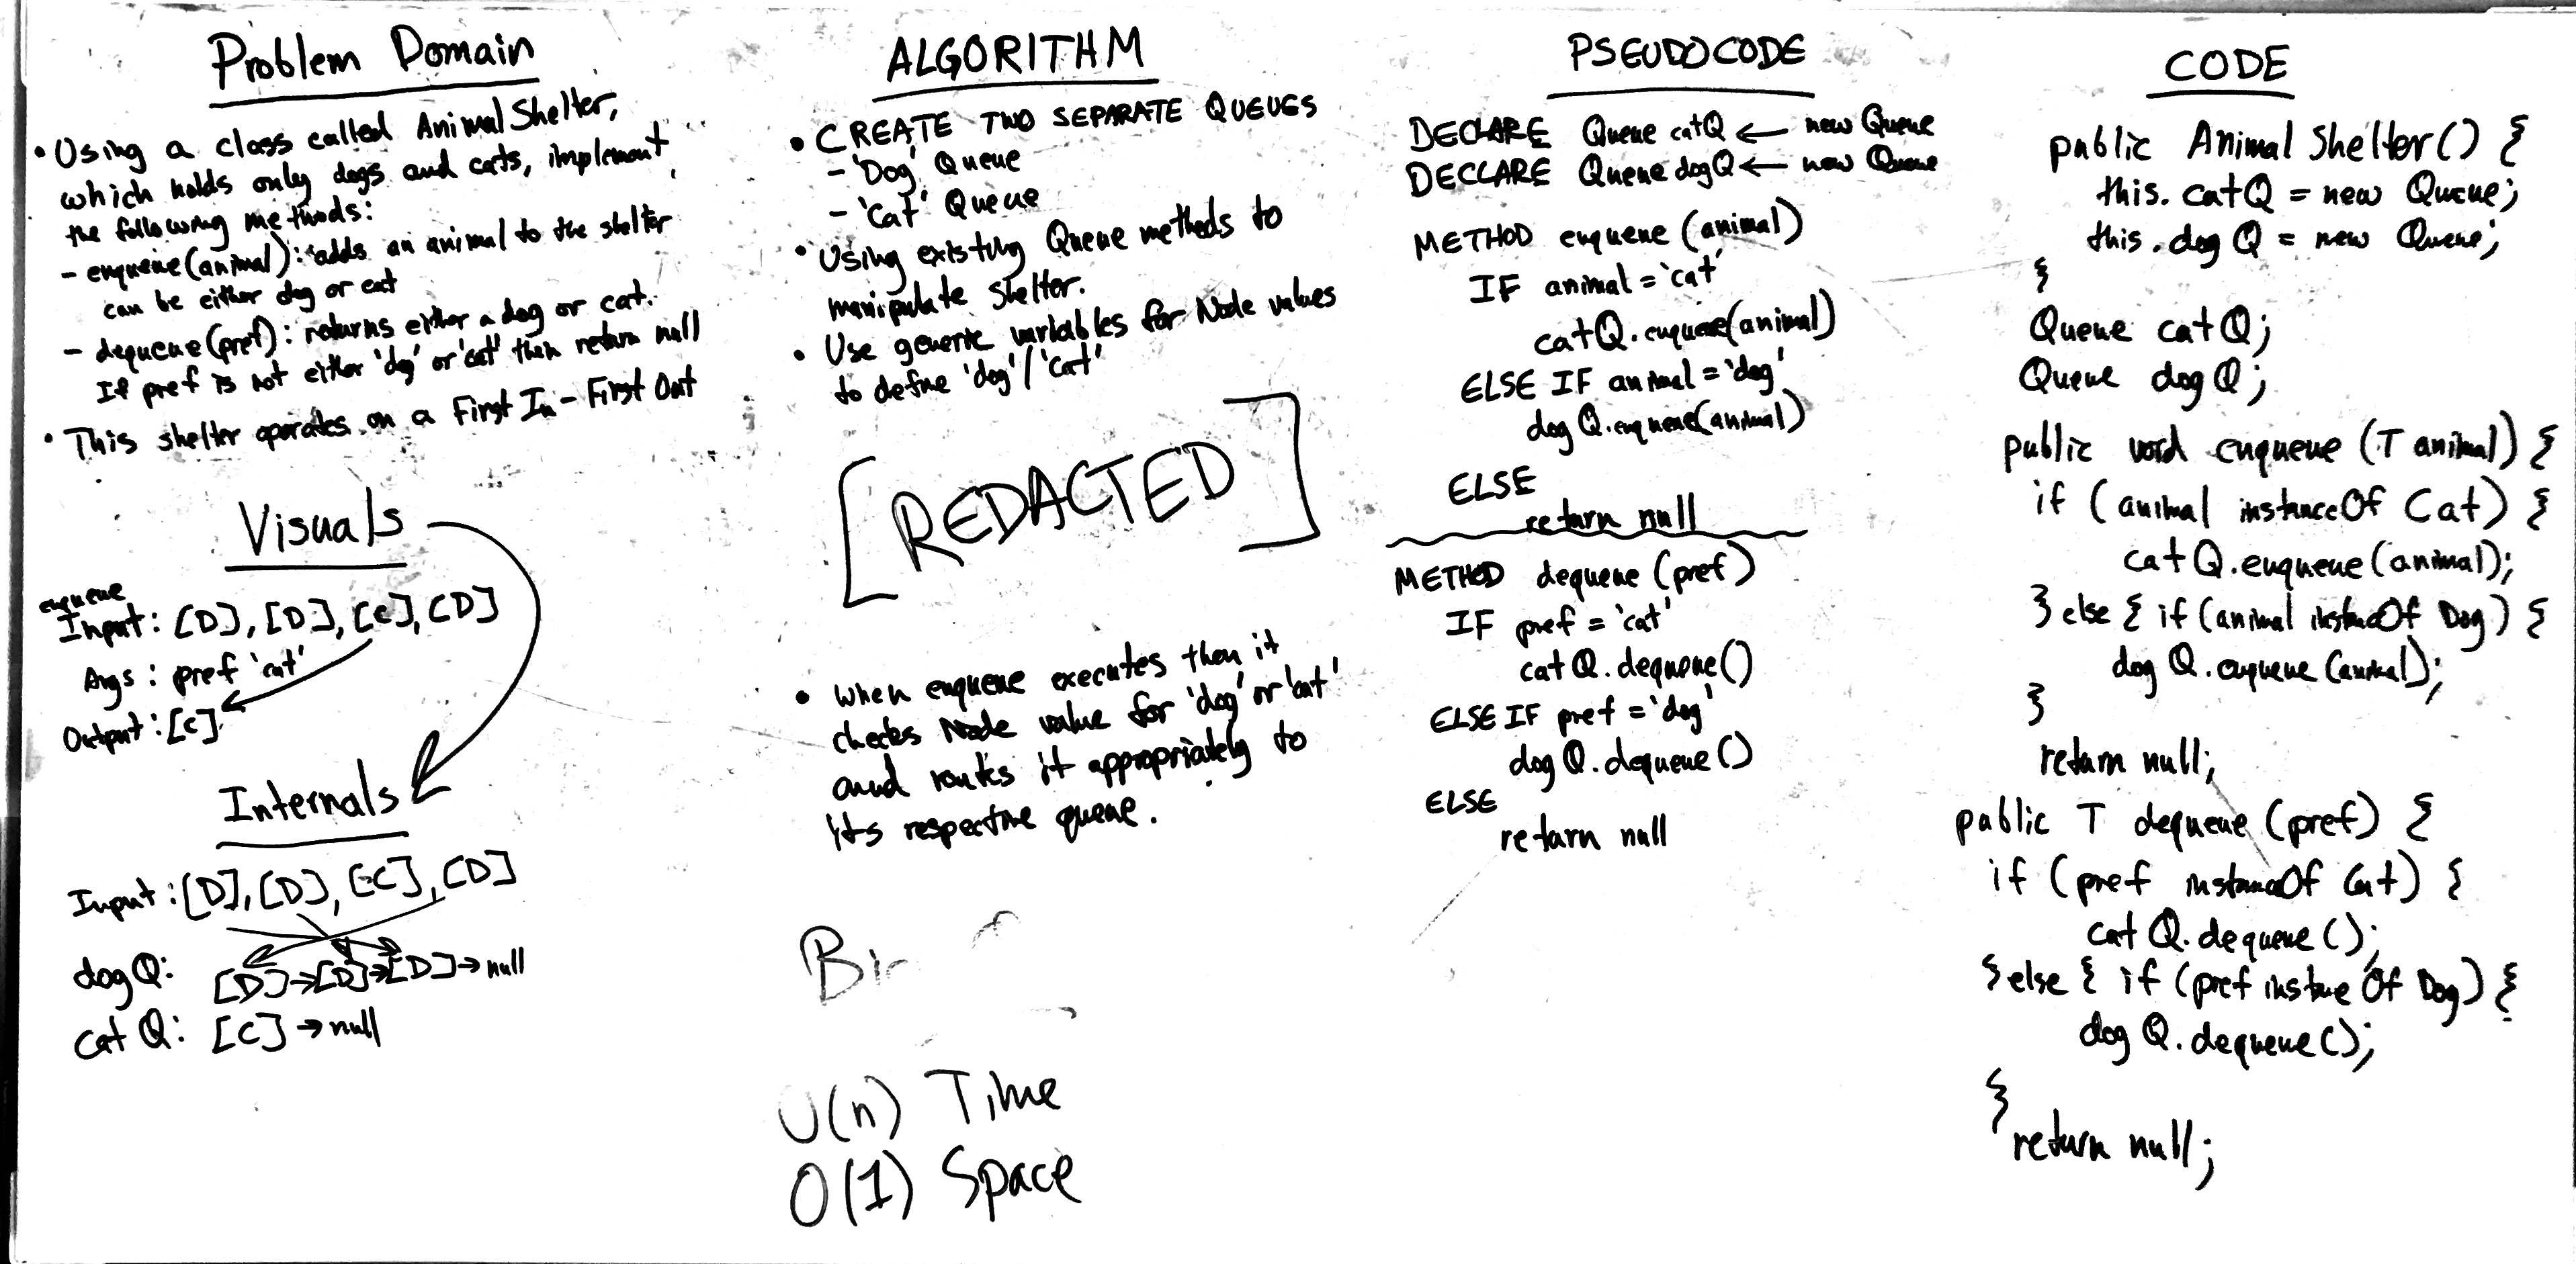 Problem Domain
• Using a class called AnimalShelter,
which holds only dogs and cats, implement
the following methods:
- enqueue(animal): adds an animal to the shelter
can be either dog or cat
- dequeue(pref): returns either a dog or cat.
If pref is not either 'dog' or 'cat' then return null
• This shelter operates on a First In - First Out
Visuals
enqueue
Input: [D], [D], [C], [D]
Args: pref 'cat'
Output: [C]
Internals
Input: [D], [D], [C], [D]
dogQ: [D]→[D]→[D]→null
catQ: [C]→null
ALGORITHM
• CREATE TWO SEPARATE QUEUES
- 'Dog' Queue
- 'Cat' Queue
• Using existing Queue methods to
manipulate shelter.
• Use generic variables for Node values
to define 'dog'/'cat'
[REDACTED]
• When enqueue executes then it
checks Node value for 'dog' or 'cat'
and routes it appropriately to
its respective queue.
O(n) Time
O(1) Space
PSEUDOCODE
DECLARE Queue catQ ← new Queue
DECLARE Queue dogQ ← new Queue
METHOD enqueue (animal)
IF animal = 'cat'
catQ.enqueue(animal)
ELSE IF animal = 'dog'
dogQ.enqueue(animal)
ELSE
return null
METHOD dequeue (pref)
IF pref = 'cat'
catQ.dequeue()
ELSE IF pref = 'dog'
dogQ.dequeue()
ELSE
return null
CODE
public AnimalShelter() {
this.catQ = new Queue;
this.dogQ = new Queue;
}
Queue catQ;
Queue dogQ;
public void enqueue (T animal) {
if (animal instanceOf Cat) {
catQ.enqueue(animal);
} else { if (animal instanceOf Dog) {
dogQ.enqueue(animal);
}
return null;
public T dequeue (pref) {
if (pref instanceOf Cat) {
catQ.dequeue();
} else { if (pref instanceOf Dog) {
dogQ.dequeue();
}
return null;